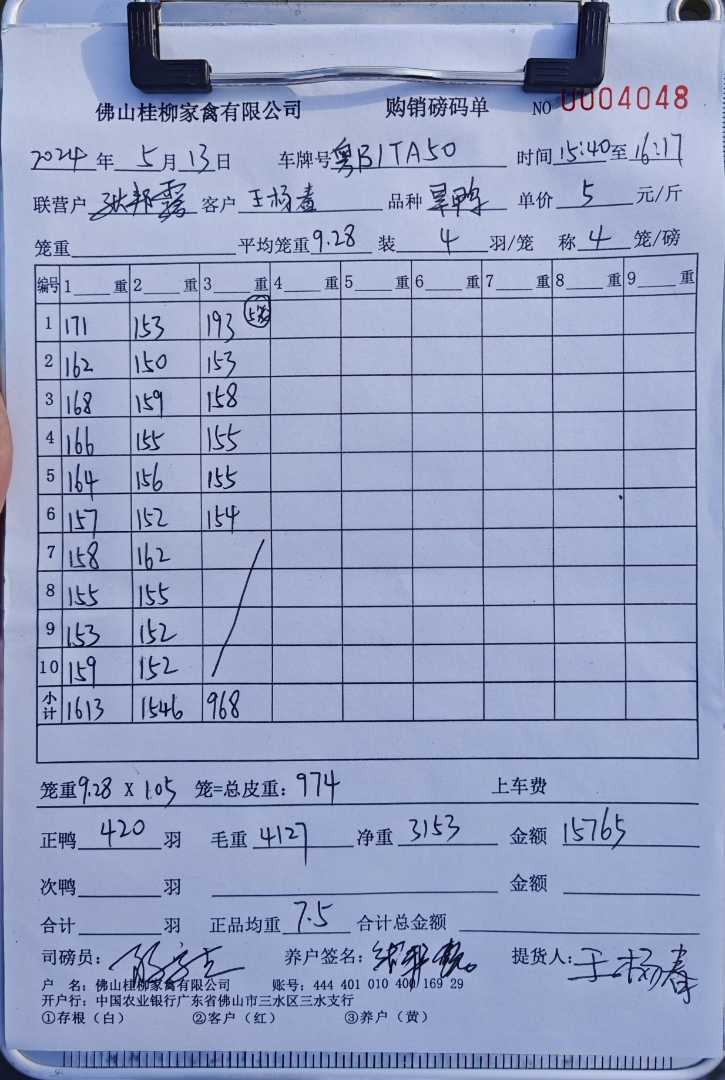 佛山桂柳家禽有限公司 购销磅码单 NO 0004048
2024年5月13日 车牌号粤B1TA50 时间15:40至16:17
联营户 客户王杨春 品种旱鸭 单价5元/斤
笼重 平均笼重9.28 装4羽/笼 称4笼/磅
编号 1 重 2 重 3 重 4 重 5 重 6 重 7 重 8 重 9 重
1 171 153 193
2 162 150 153
3 168 159 158
4 166 155 155
5 164 156 155
6 157 152 154
7 158 162
8 155 155
9 153 152
10 159 152
小计 1613 1546 968
笼重9.28 X 105 笼=总皮重：974 上车费
正鸭420羽 毛重4127 净重3153 金额15765
次鸭 羽 金额
合计 羽 正品均重7.5 合计总金额
司磅员： 养户签名： 提货人：王杨春
户 名：佛山桂柳家禽有限公司 账号：444 401 010 400 169 29
开户行：中国农业银行广东省佛山市三水区三水支行
①存根（白） ②客户（红） ③养户（黄）